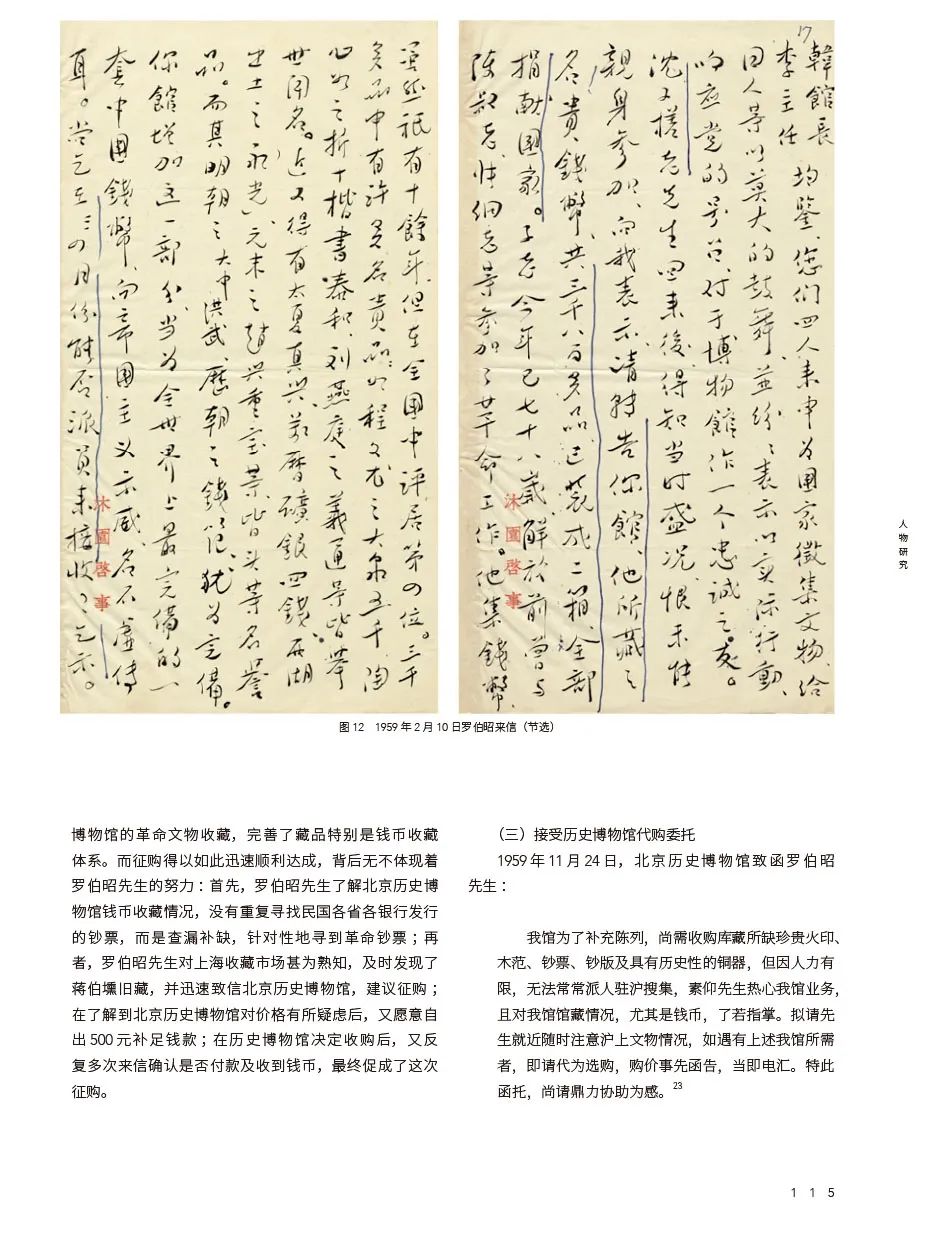 17
韓館長
李主任 均鑒、您们四人来申为国家徵集文物、给
同人等以莫大的鼓舞、並纷々表示以实际行動、
响应党的号召、对于博物館作一个忠诚之友。
沈子槎老先生回来後、得知当时盛况、恨未能
親身参加、向我表示请转告你館、他所藏之
名貴錢幣、共三千八百多品、已装成二箱、全部
捐献國家。子老今年已七十八歲、解放前曾与
陈叔老、老等参加了革命工作。他集錢幣、
沐園啓事
虽然祇有十餘年、但在全国中评居第四位。三千
多品中有许多名贵品、如程文龙之大泉五千、陶
心如之折十楷書泰和、刘燕庭之義通等皆举
世闻名。近又得有太夏真兴、萬曆礦銀四錢、西湖
出土之永光、元末之兴重宝等、皆头等名誉
品。而其明朝之大中洪武、歷朝之錢、犹为完備。
你館增加这一部分、当为全世界上最完備的一
套中国錢幣、向帝国主义示威、名不虚传
耳。乞在三四月份能否派員来接收、乞示。
沐園啓事
图 12 1959 年 2 月 10 日罗伯昭来信（节选）
人物研究
博物馆的革命文物收藏，完善了藏品特别是钱币收藏
体系。而征购得以如此迅速顺利达成，背后无不体现着
罗伯昭先生的努力：首先，罗伯昭先生了解北京历史博
物馆钱币收藏情况，没有重复寻找民国各省各银行发行
的钞票，而是查漏补缺，针对性地寻到革命钞票；再
者，罗伯昭先生对上海收藏市场甚为熟知，及时发现了
蒋伯壎旧藏，并迅速致信北京历史博物馆，建议征购；
在了解到北京历史博物馆对价格有所疑虑后，又愿意自
出 500 元补足钱款；在历史博物馆决定收购后，又反
复多次来信确认是否付款及收到钱币，最终促成了这次
征购。
（三）接受历史博物馆代购委托
1959 年 11 月 24 日，北京历史博物馆致函罗伯昭
先生：
我馆为了补充陈列，尚需收购库藏所缺珍贵火印、
木范、钞票、钞版及具有历史性的铜器，但因人力有
限，无法常常派人驻沪搜集，素仰先生热心我馆业务，
且对我馆馆藏情况，尤其是钱币，了若指掌。拟请先
生就近随时注意沪上文物情况，如遇有上述我馆所需
者，即请代为选购，购价事先函告，当即电汇。特此
函托，尚请鼎力协助为感。23
115